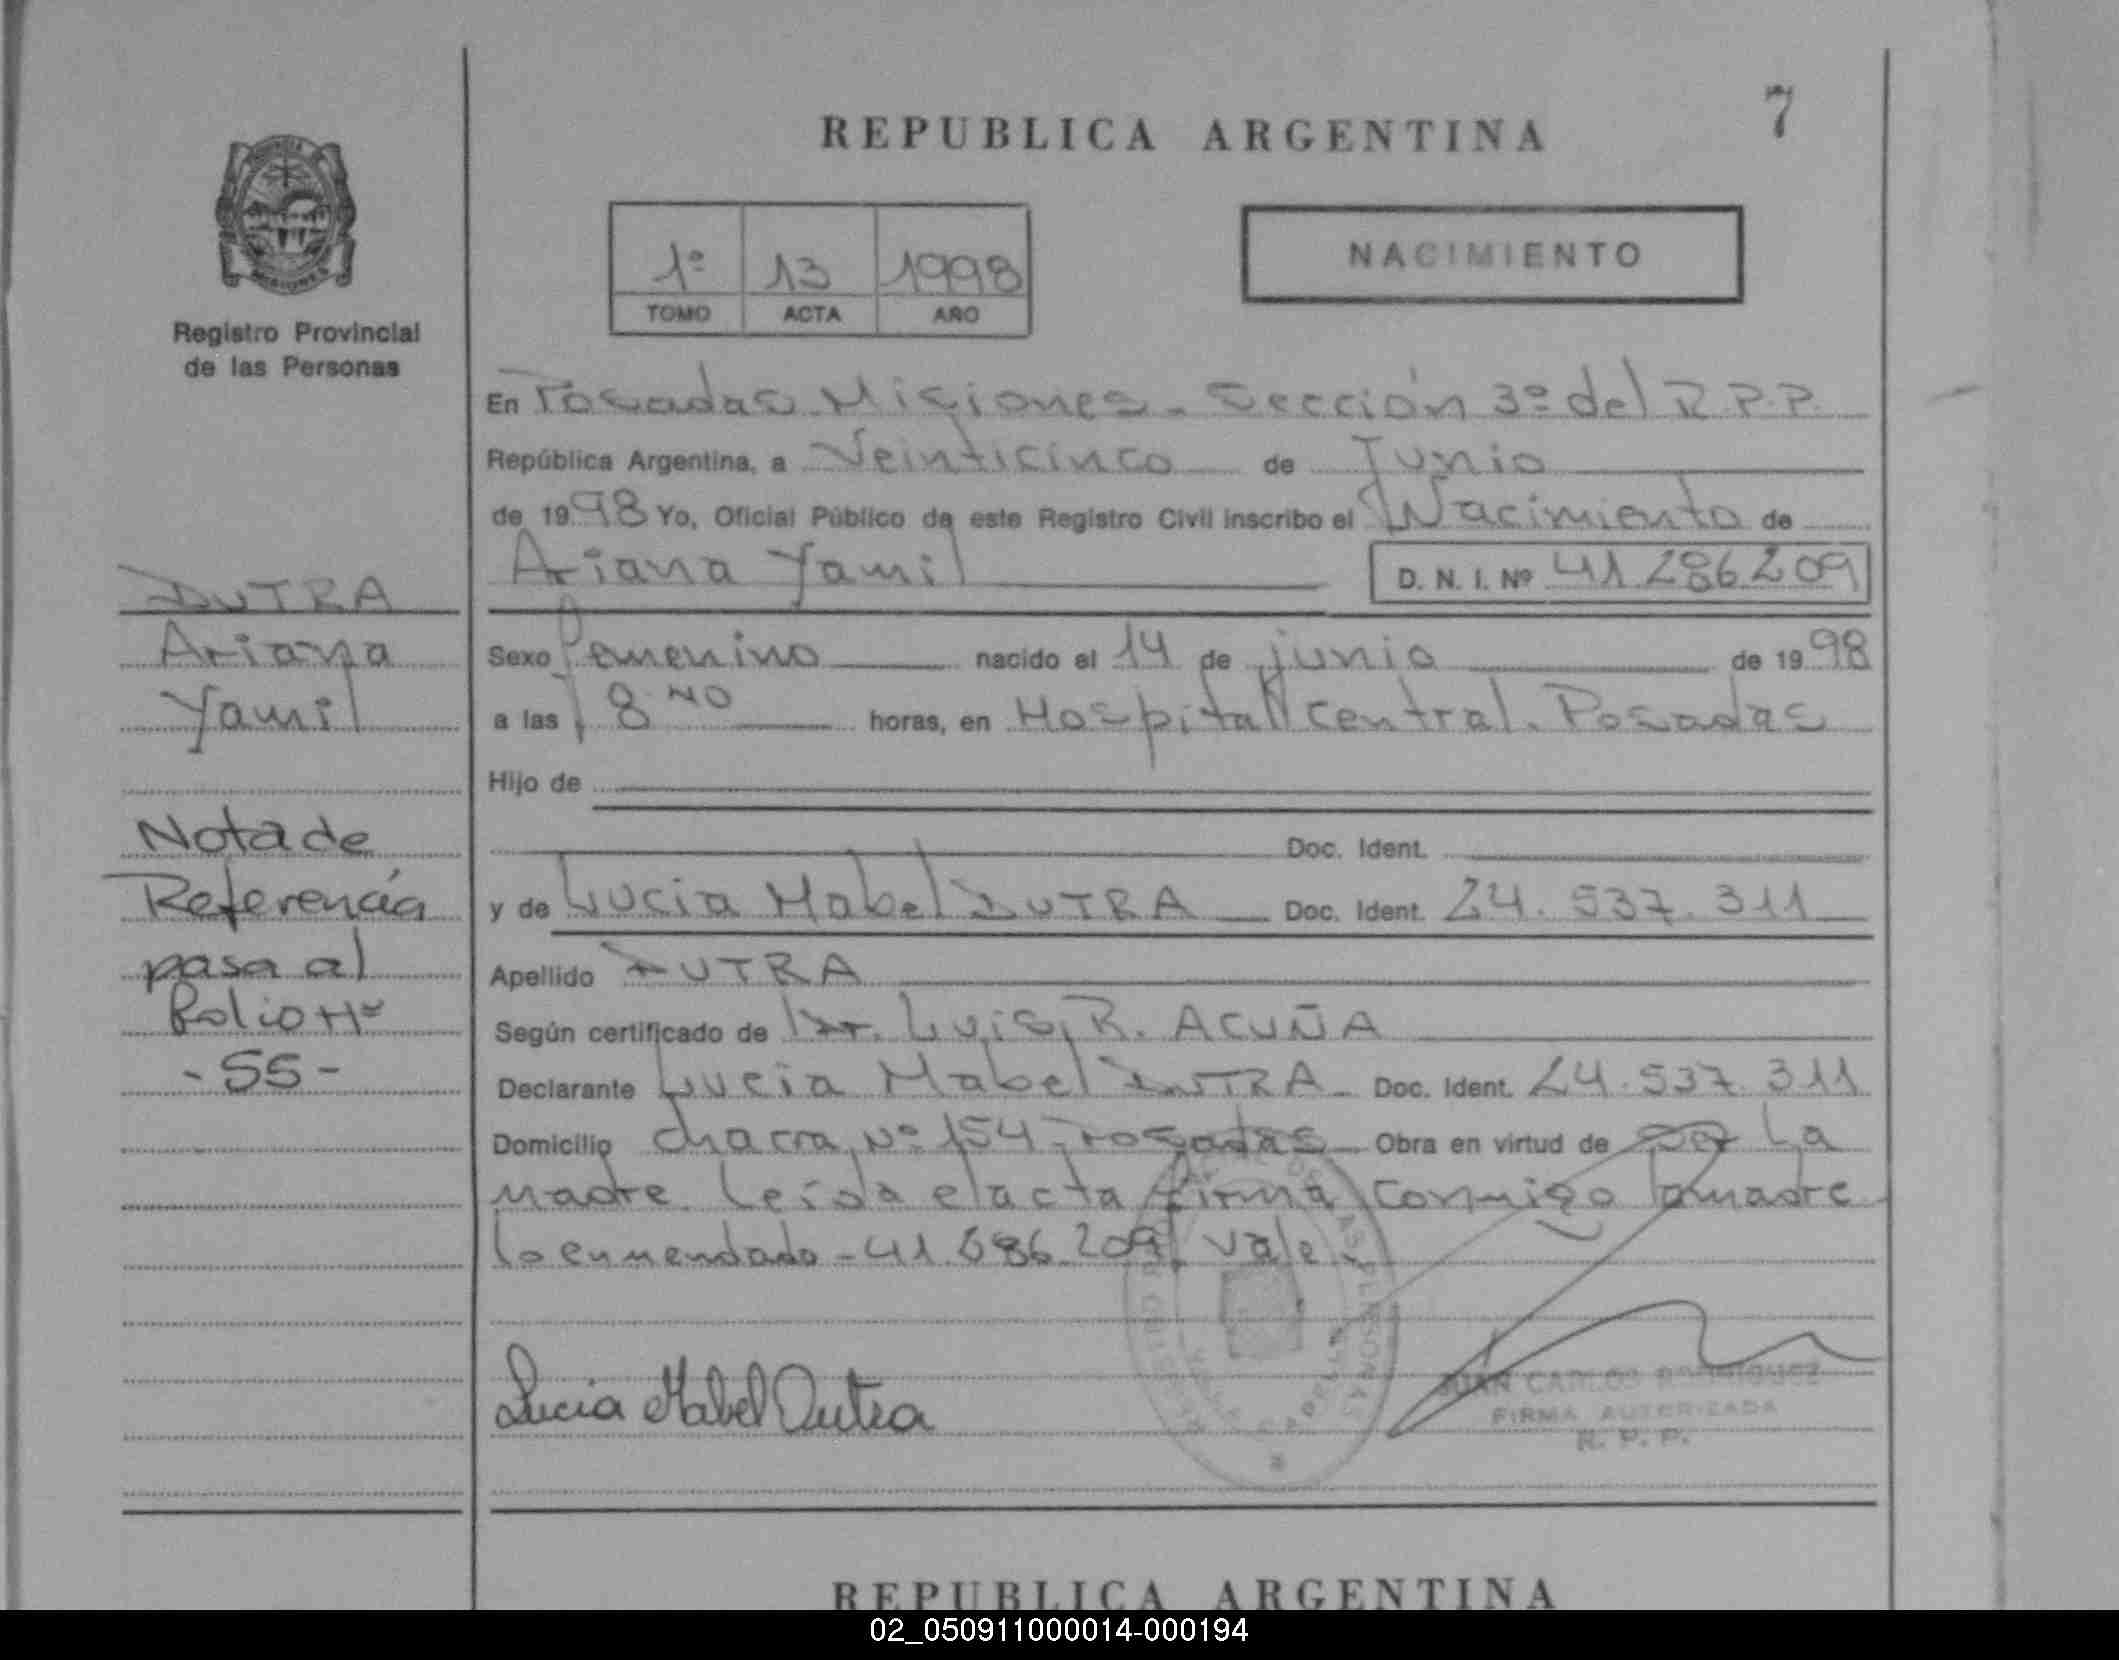 REPUBLICA ARGENTINA
7
1º 13 1998
TOMO ACTA AÑO
NACIMIENTO
Registro Provincial
de las Personas
En Posadas Misiones - Sección 3º del R.P.P.
República Argentina, a Veinticinco de Junio
de 1998 Yo, Oficial Público de este Registro Civil inscribo el Nacimiento de
Ariana Yamil D. N. I. Nº 41 286 209
Sexo femenino nacido el 14 de junio de 1998
a las 8 40 horas, en Hospital Central. Posadas
Hijo de
Doc. Ident.
y de Lucia Mabel DUTRA Doc. Ident. 24.537.311
Apellido DUTRA
Según certificado de Dr. Luis R. ACUÑA
Declarante Lucia Mabel DUTRA - Doc. Ident. 24.537.311
Domicilio Chacra Nº 154 - Posadas - Obra en virtud de ser La
madre. Leida el acta firma conmigo la madre
lo enmendado - 41.286.209 Vale -
Lucia Mabel Dutra
JUAN CARLOS RODRIGUEZ
FIRMA AUTORIZADA
R. P. P.
DUTRA
Ariana
Yamil
Nota de
Referencia
pasa al
folio Nº
- 55 -
REPUBLICA ARGENTINA
02_050911000014-000194